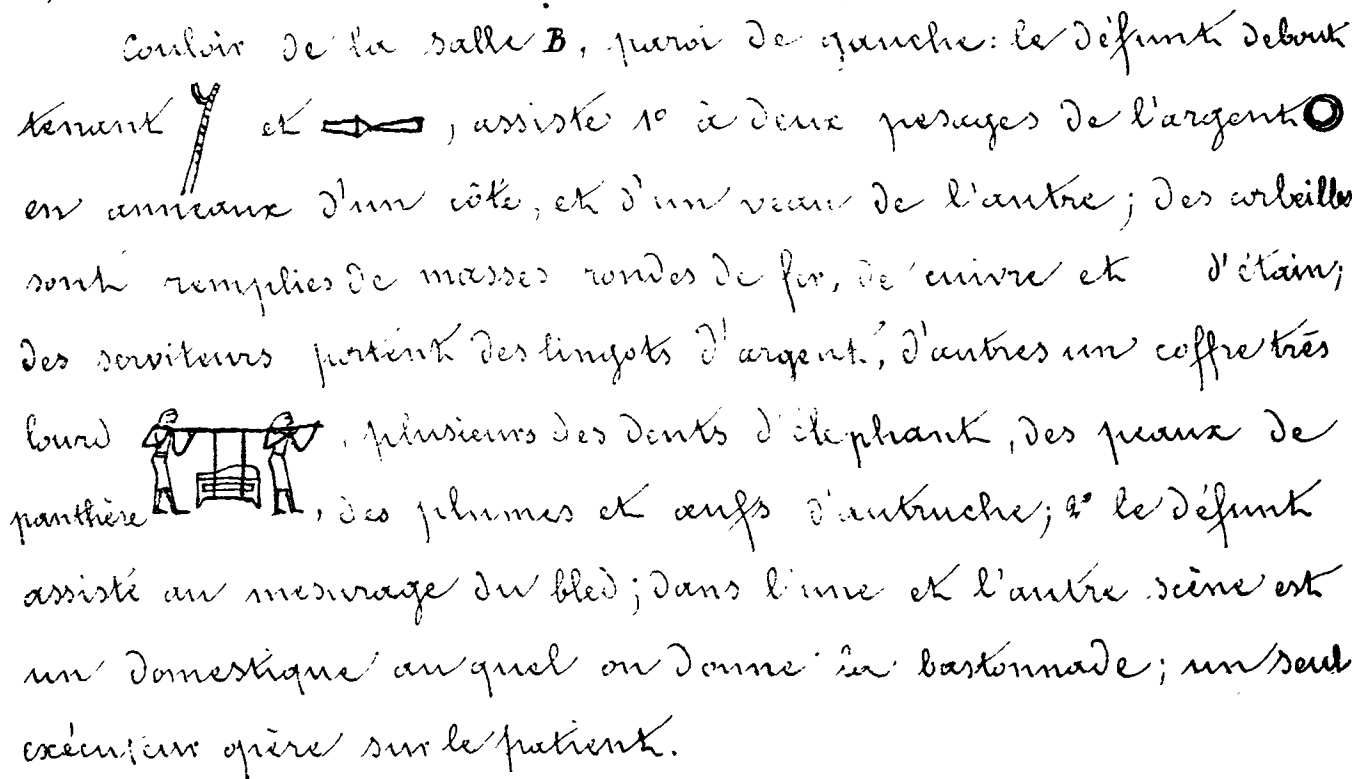 Couloir de la salle B, paroi de gauche: le défunt debout
tenant et , assiste 1° à deux pesages de l'argent
en anneaux d'un côté, et d'un veau de l'autre; des corbeilles
sont remplies de masses rondes de fer, de cuivre et d'étain;
des serviteurs portent des lingots d'argent, d'autres un coffre très
lourd , plusieurs des dents d'éléphant, des peaux de
panthère , des plumes et œufs d'autruche; 2° le défunt
assiste au mesurage du bled; dans l'une et l'autre scène est
un domestique auquel on donne la bastonnade; un seul
exécuteur opère sur le patient.